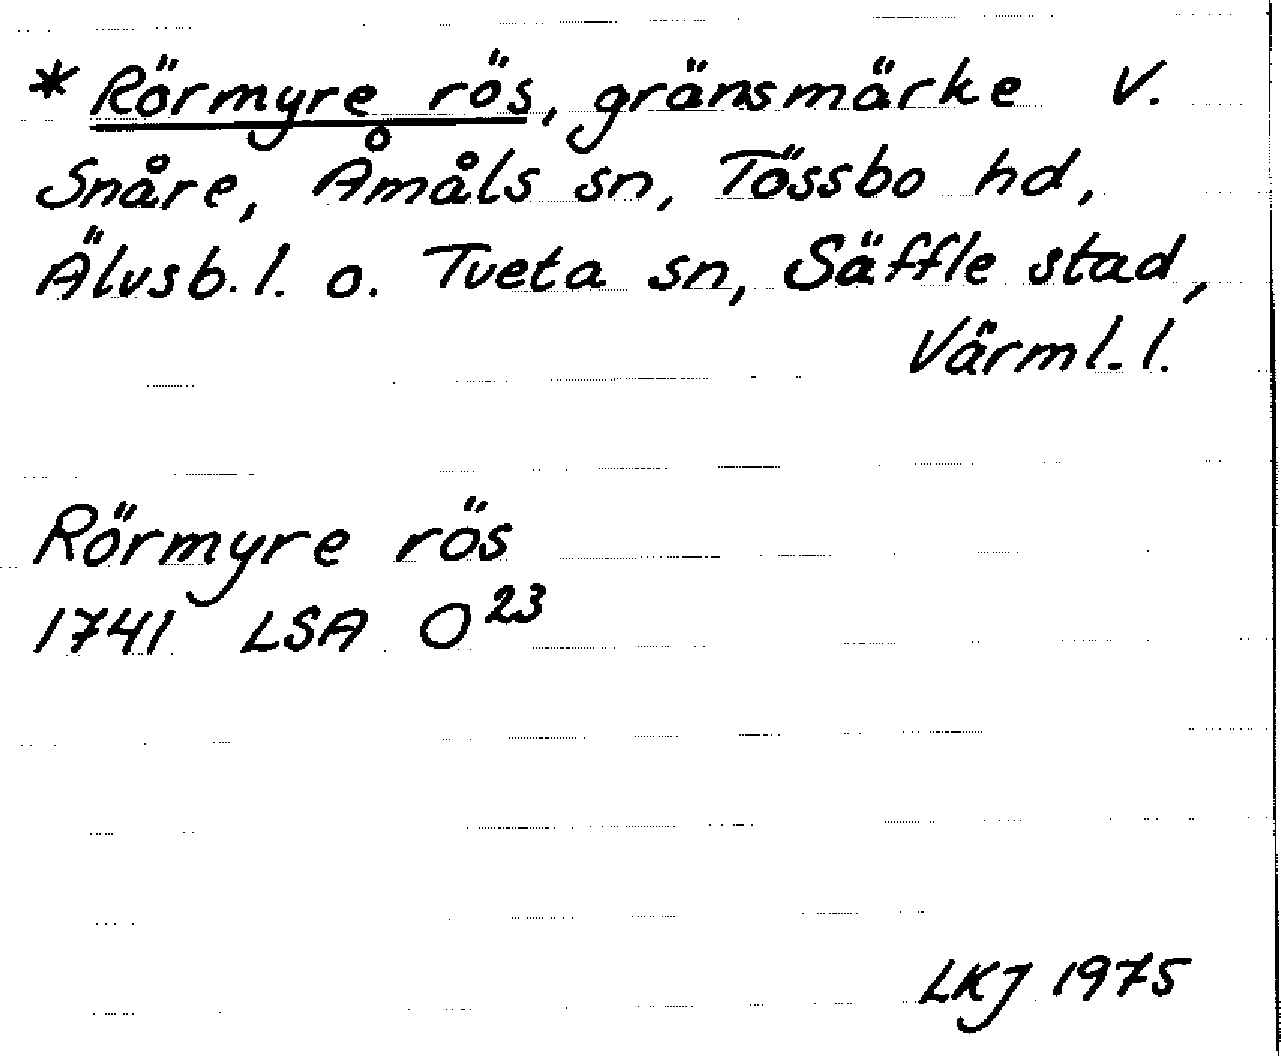 * Rörmyre rös, gränsmärke V.
Snåre, Åmåls sn, Tössbo hd,
Älvsb. l. o. Tveta sn, Säffle stad,
Värml. l.
Rörmyre rös
1741 LSA O 23
LKJ 1975